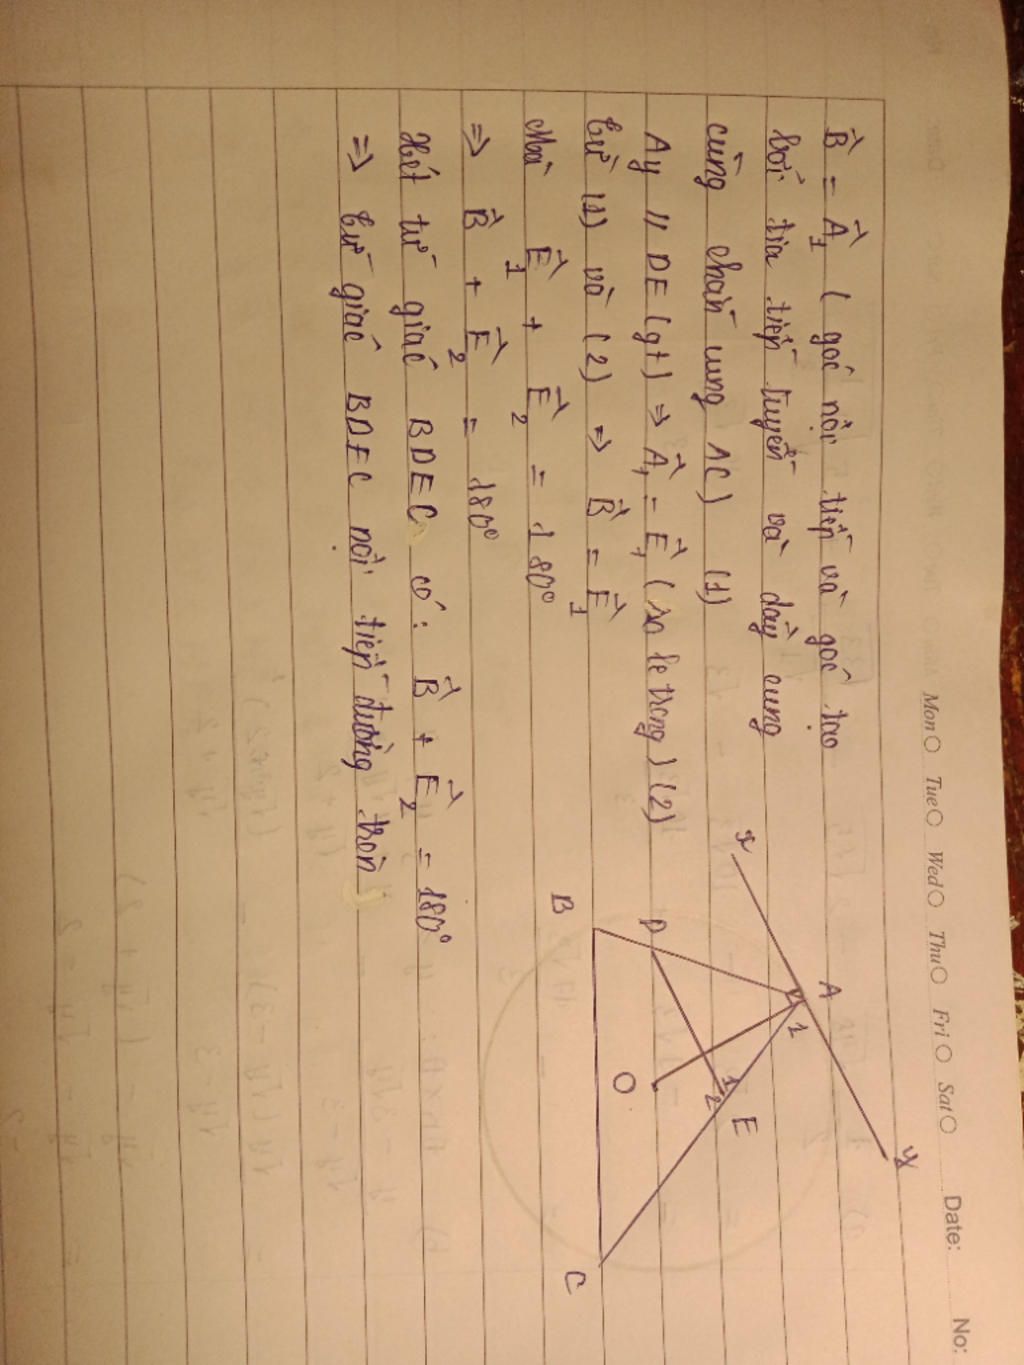 No:
Date:
Mon Tue Wed Thu Fri Sat
B̂ = Â₁ ( góc nội tiếp và góc tạo
bởi tia tiếp tuyến và dây cung
cùng chắn cung AC) (1)
Ay // DE (gt) ⇒ Â₁ = Ê₁ ( so le trong) (2)
từ (1) và (2) ⇒ B̂ = Ê₁
Mà Ê₁ + Ê₂ = 180°
⇒ B̂ + Ê₂ = 180°
Xét tứ giác BDEC có: B̂ + Ê₂ = 180°
⇒ tứ giác BDEC nội tiếp đường tròn
x
A
y
1
D
E
1
2
O
B
C